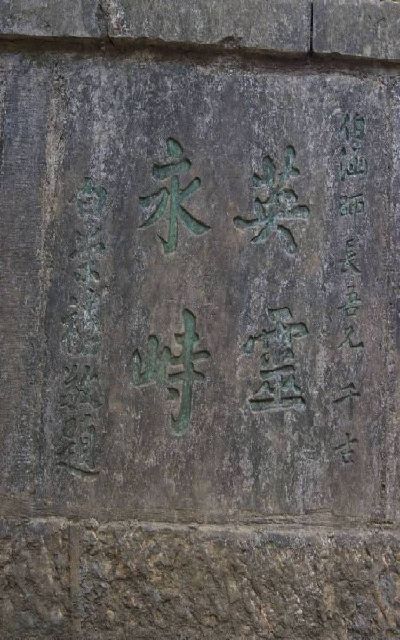 伯涵師長吾兄 千古
英靈
永峙
白崇禧敬題